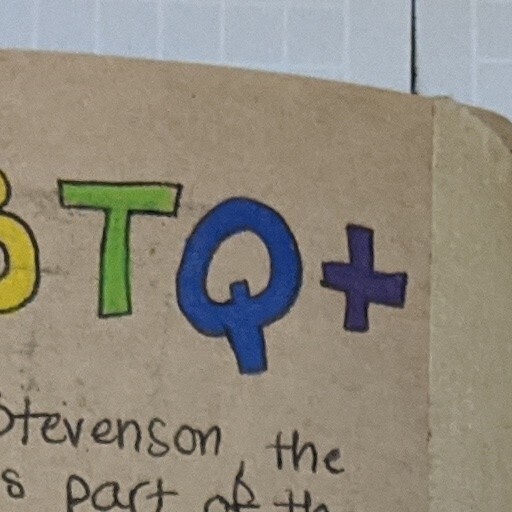 BTQ+
Stevenson, the
s part of th